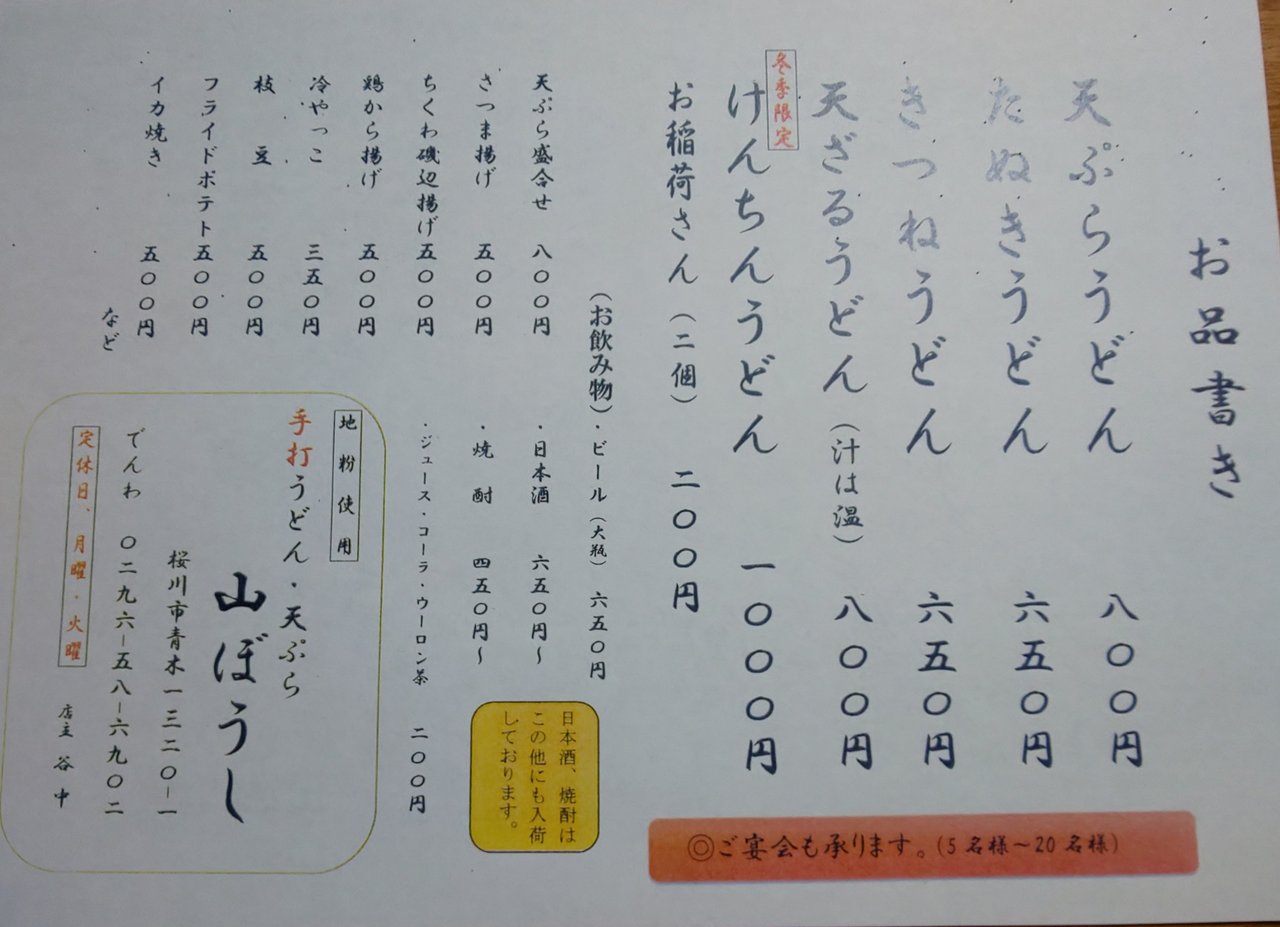 お品書き
天ぷらうどん 八〇〇円
たぬきうどん 六五〇円
きつねうどん 六五〇円
天ざるうどん（汁は温） 八〇〇円
冬季限定
けんちんうどん 一〇〇〇円
お稲荷さん（二個） 二〇〇円
◎ご宴会も承ります。（5名様～20名様）
（お飲み物）・ビール（大瓶） 六五〇円
・日本酒 六五〇円～
・焼酎 四五〇円～
・ジュース・コーラ・ウーロン茶 二〇〇円
日本酒、焼酎は
この他にも入荷
しております。
天ぷら盛合せ 八〇〇円
さつま揚げ 五〇〇円
ちくわ磯辺揚げ 五〇〇円
鶏から揚げ 五〇〇円
冷やっこ 三五〇円
枝豆 五〇〇円
フライドポテト 五〇〇円
イカ焼き 五〇〇円
など
地粉使用
手打うどん・天ぷら
山ぼうし
桜川市青木一三二〇－一
でんわ 〇二九六－五八－六九〇二
定休日、月曜・火曜
店主 谷中